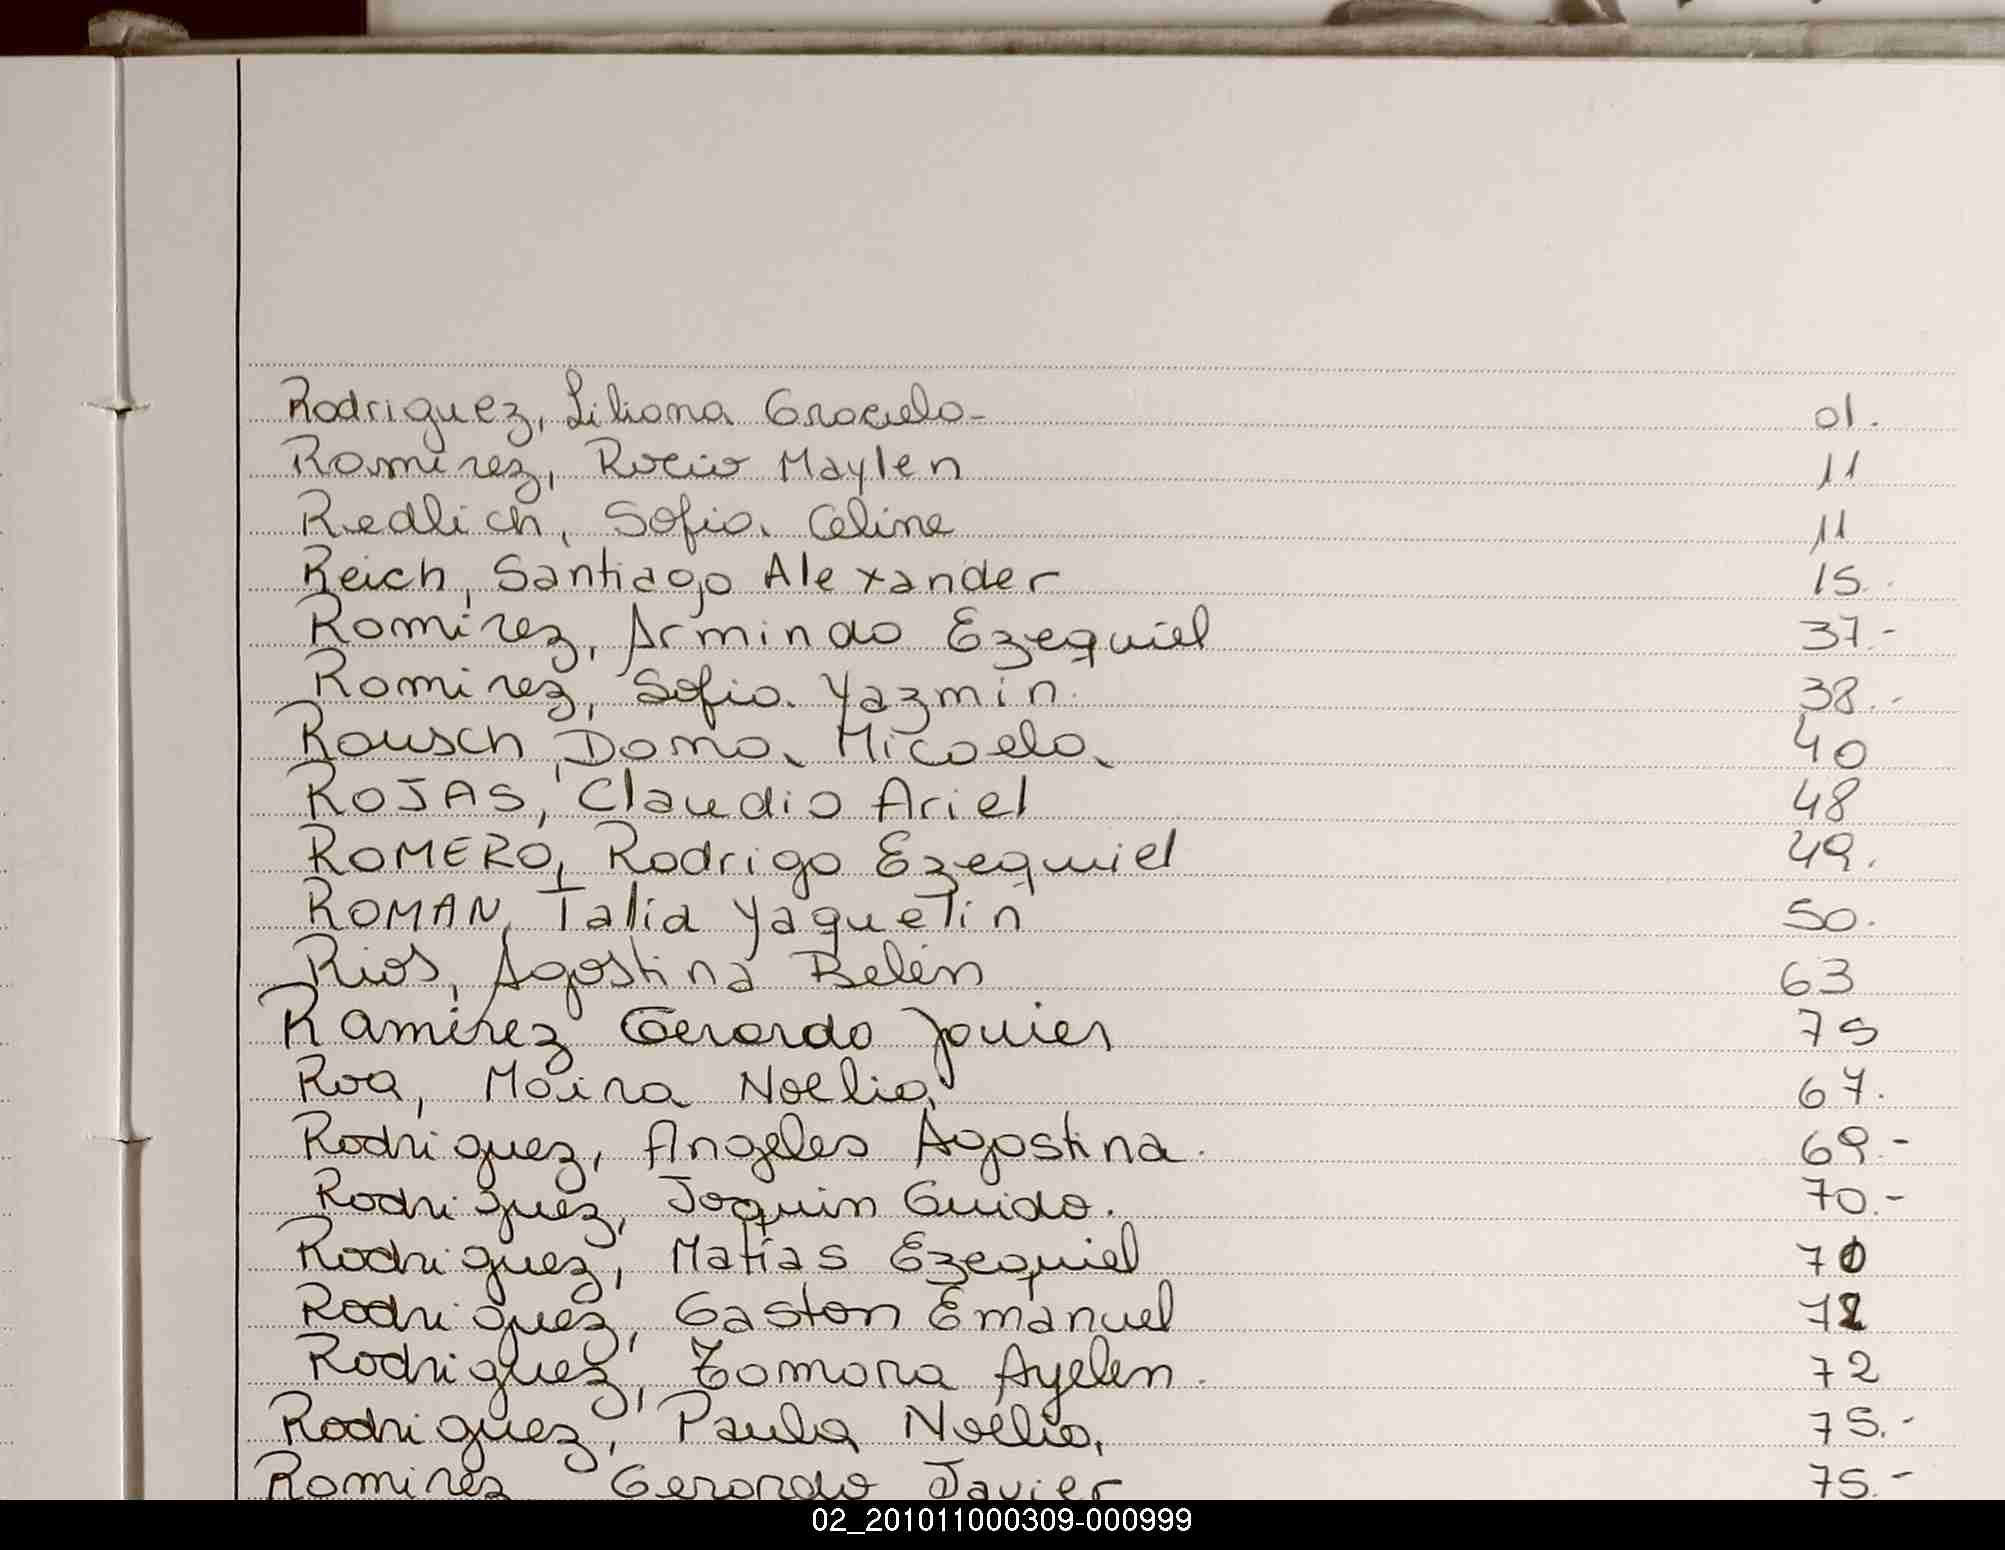 Rodriguez, Liliana Graciela- 01.
Ramirez, Rocio Maylen 11
Redlich, Sofia Celine 11
Reich, Santiago Alexander 15.
Ramirez, Armindo Ezequiel 37.-
Ramirez, Sofia Yazmin. 38.-
Rausch, Dama Micaela 40
ROJAS, Claudio Ariel 48
ROMERO, Rodrigo Ezequiel 49.
ROMAN, Talia Yaquelin 50.
Rios, Agostina Belén 63
Ramirez Gerardo Javier 75
Roa, Moira Noelia 67.
Rodriguez, Angeles Agostina. 69.-
Rodriguez, Joaquin Guido. 70.-
Rodriguez, Matias Ezequiel 71
Rodriguez, Gaston Emanuel 72
Rodriguez, Tamara Ayelen. 72
Rodriguez, Paula Noelia, 75.-
Ramirez Gerardo Javier 75.-
02_201011000309-000999